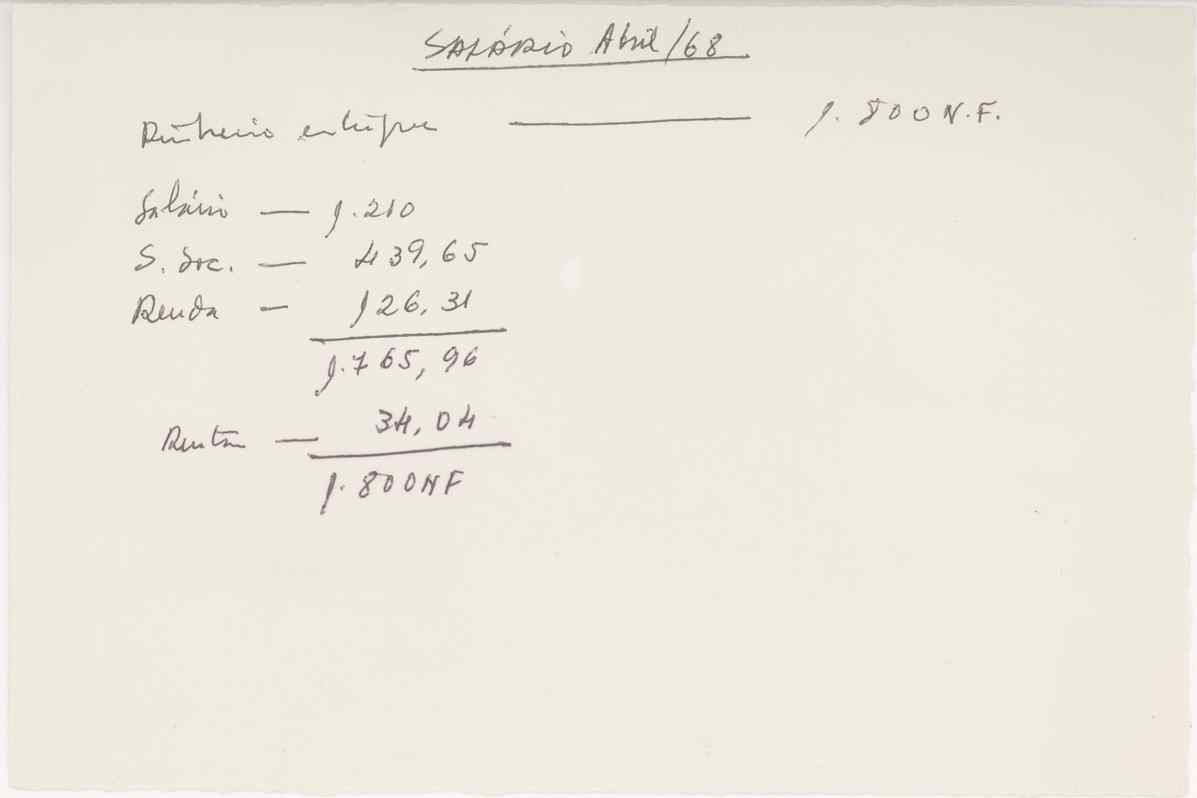 SALÁRIO Abril/68
Dinheiro entregue — 1.800 N.F.
Salário — 1.210
S. Soc. — 439,65
Renda — 126,31
1.765,96
Resta — 34,04
1.800 NF